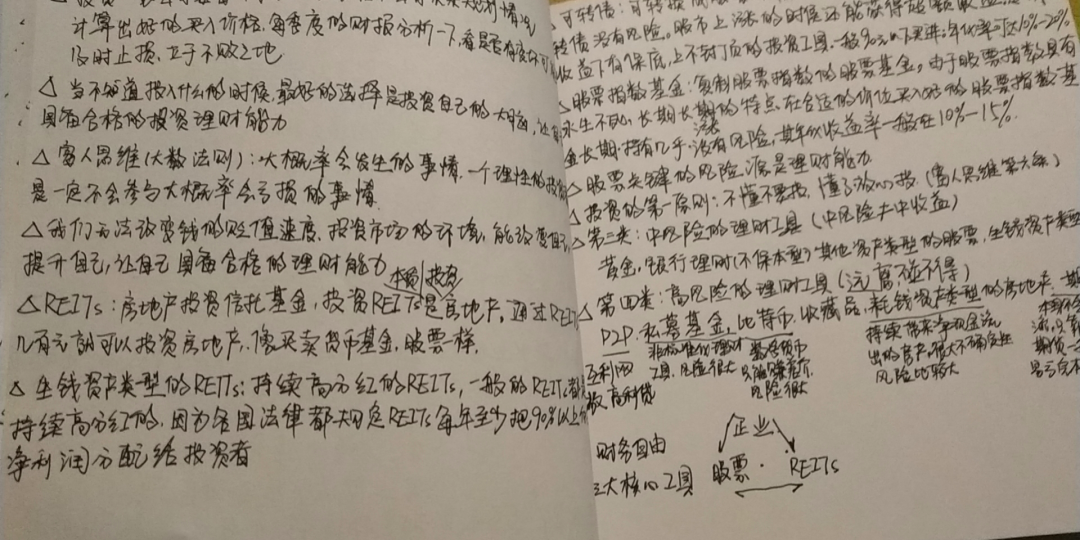 计算出好的买入价格，每季度的财报分析一下，看是否有
及时止损，立于不败之地
△ 当不知道投入什么的时候，最好的选择是投资自己的大脑，让
具备合格的投资理财能力
△ 富人思维(大数法则)：大概率会发生的事情，一个理性的投
是一定不会参与大概率会亏损的事情。
△ 我们无法改变钱的贬值速度、投资市场的环境，能改变自己
提升自己，让自己具备合格的理财能力
本质投资
△ REITs：房地产投资信托基金，投资REITs是房地产，通过REITs
几百元就可以投资房地产，像买卖货币基金，股票一样。
△ 生钱资产类型的REITs：持续高分红的REITs，一般的REITs都
持续高分红的，因为各国法律都规定REITs每年至少把90%以上
净利润分配给投资者
可转债：可转换
转债没有风险。股市上涨的时候还能获得超额收益
收益下有保底，上不封顶的投资工具。一般90元以下买进，年化率可达10%~20%
△ 股票指数基金：复制股票指数的股票基金，由于股票指数具有
永生不死，长期长涨的特点，在合适的价位买入好的股票指数基
金长期持有几乎没有风险，其年收益率一般在10%—15%.
△ 股票关键的风险源是理财能力
△ 投资的第一原则：不懂不要投，懂了放心投。(富人思维第六条)
△ 第三类：中风险的理财工具(中风险+中收益)
黄金，银行理财(不保本型)其他资产类型的股票，生钱资产类型
△ 第四类：高风险的理财工具(远离，碰不得)
P2P、私募基金，比特币，收藏品，耗钱资产类型的房地产，期
互联网
放高利贷
非标准化理财
工具，风险很大
数字货币
风险很大
持续带来净现金流
出的房产，很大不确定性
风险比较大
期货
财务自由
三大核心工具
企业
股票 · REITs